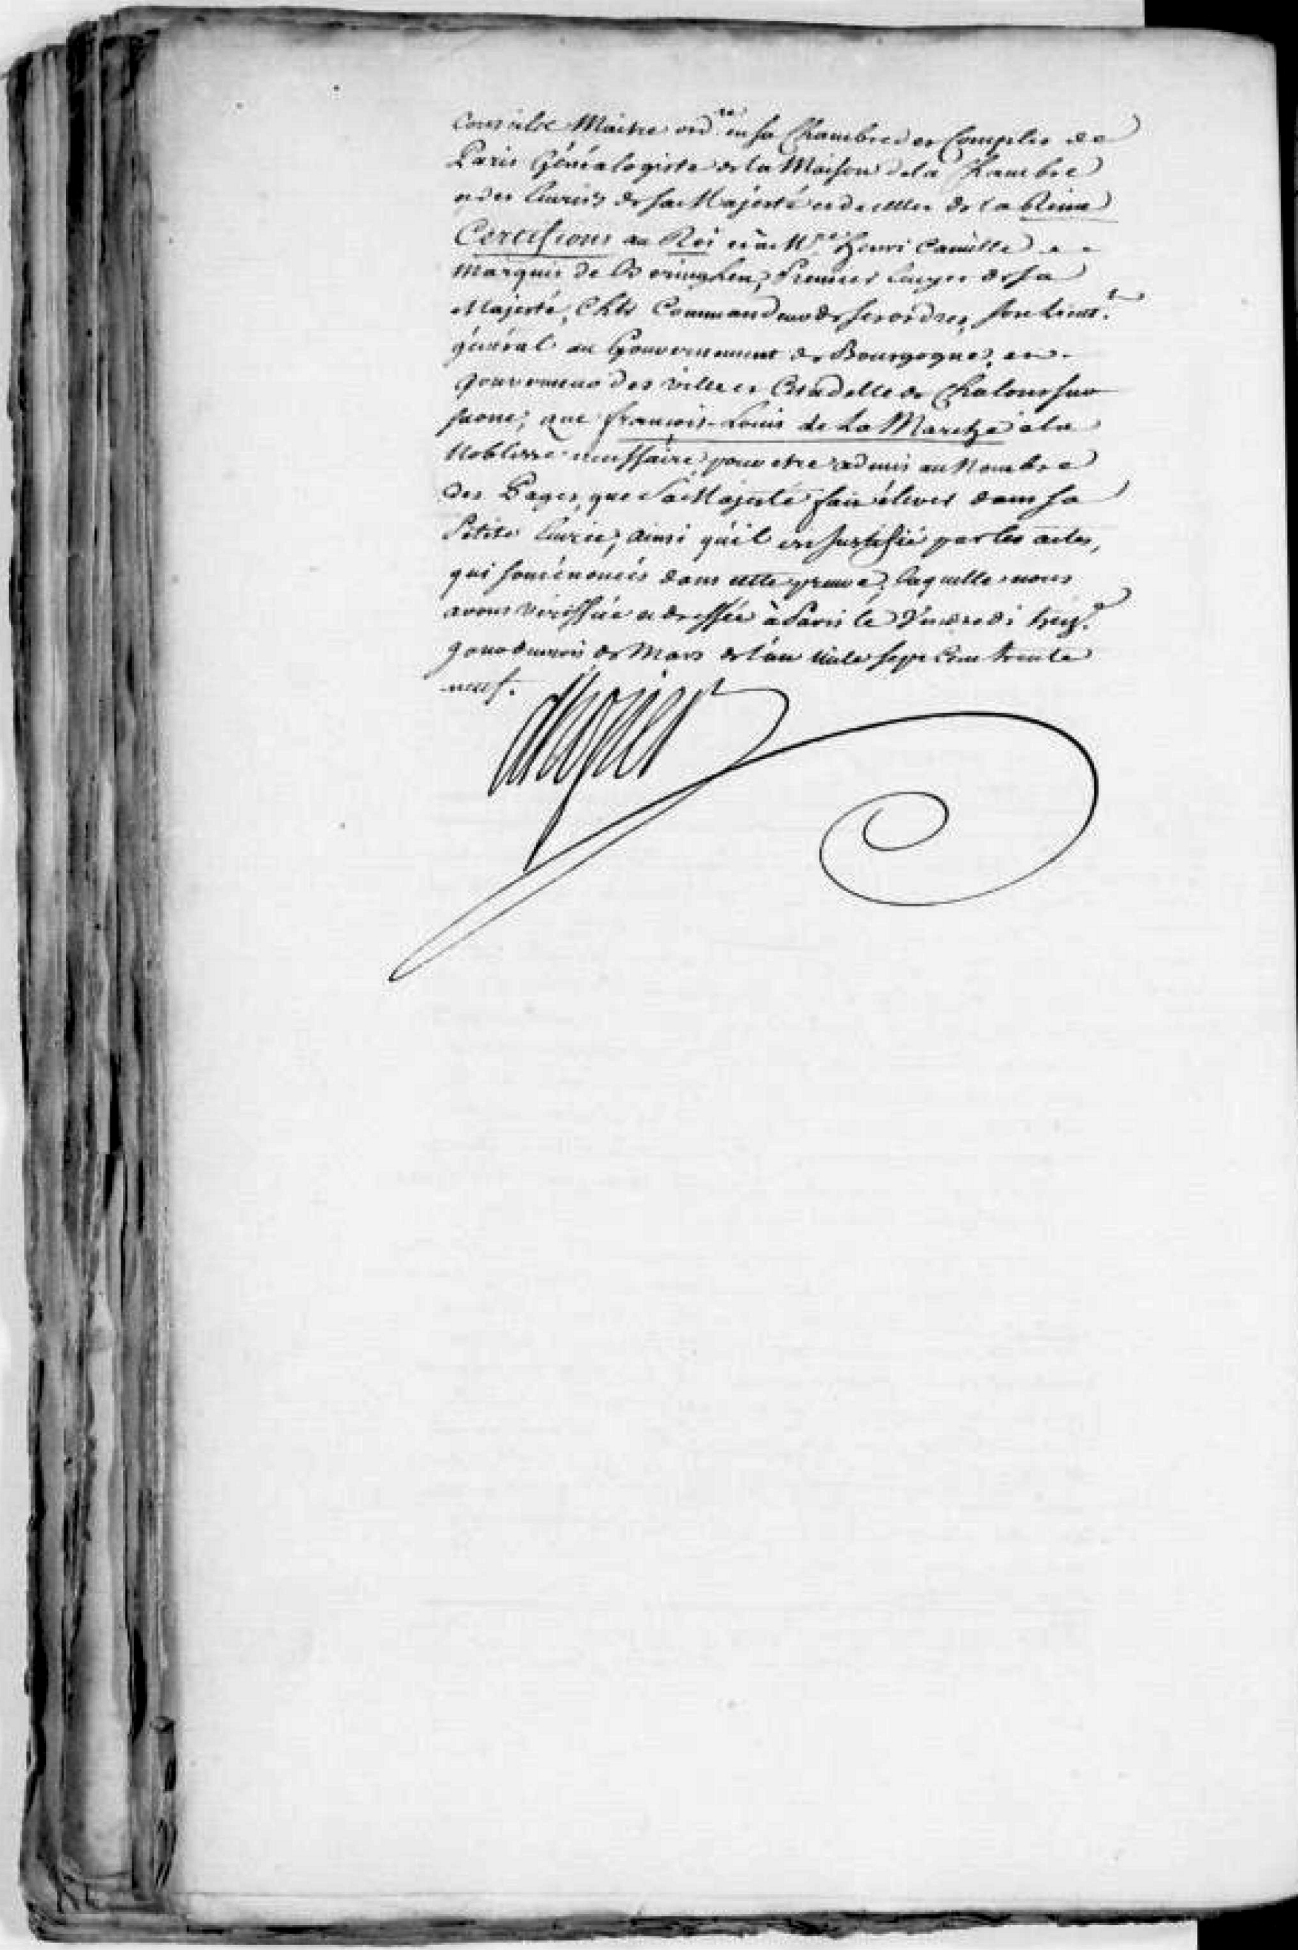 Conseiller Maitre ord.re en sa Chambre des Comptes de
Paris Généalogiste de la Maison de la Chambre
et des Ecuries de Sa Majesté et de celles de la Reine
Certifions au Roi et à M.re Henri Camille
Marquis de Beringhen, Premier Ecuyer de sa
Majesté, Ch.er Commandeur de ses ordres, son Lieut.t
général au Gouvernement de Bourgogne, et
gouverneur des ville et Citadelle de Chalons sur
saone; que françois-Louis de La a la
Noblesse necessaire pour etre admis au Nombre
des Pages, que Sa Majesté fait élever dans sa
Petite Ecurie, ainsi qu'il est justifié par les actes,
qui sont énoncés dans cette preuve, laquelle nous
avons vériffiée et dressée à Paris le Vendredi treiz.e
jour du mois de Mars de l'an mile sept cens trente
neuf.
d'hozier